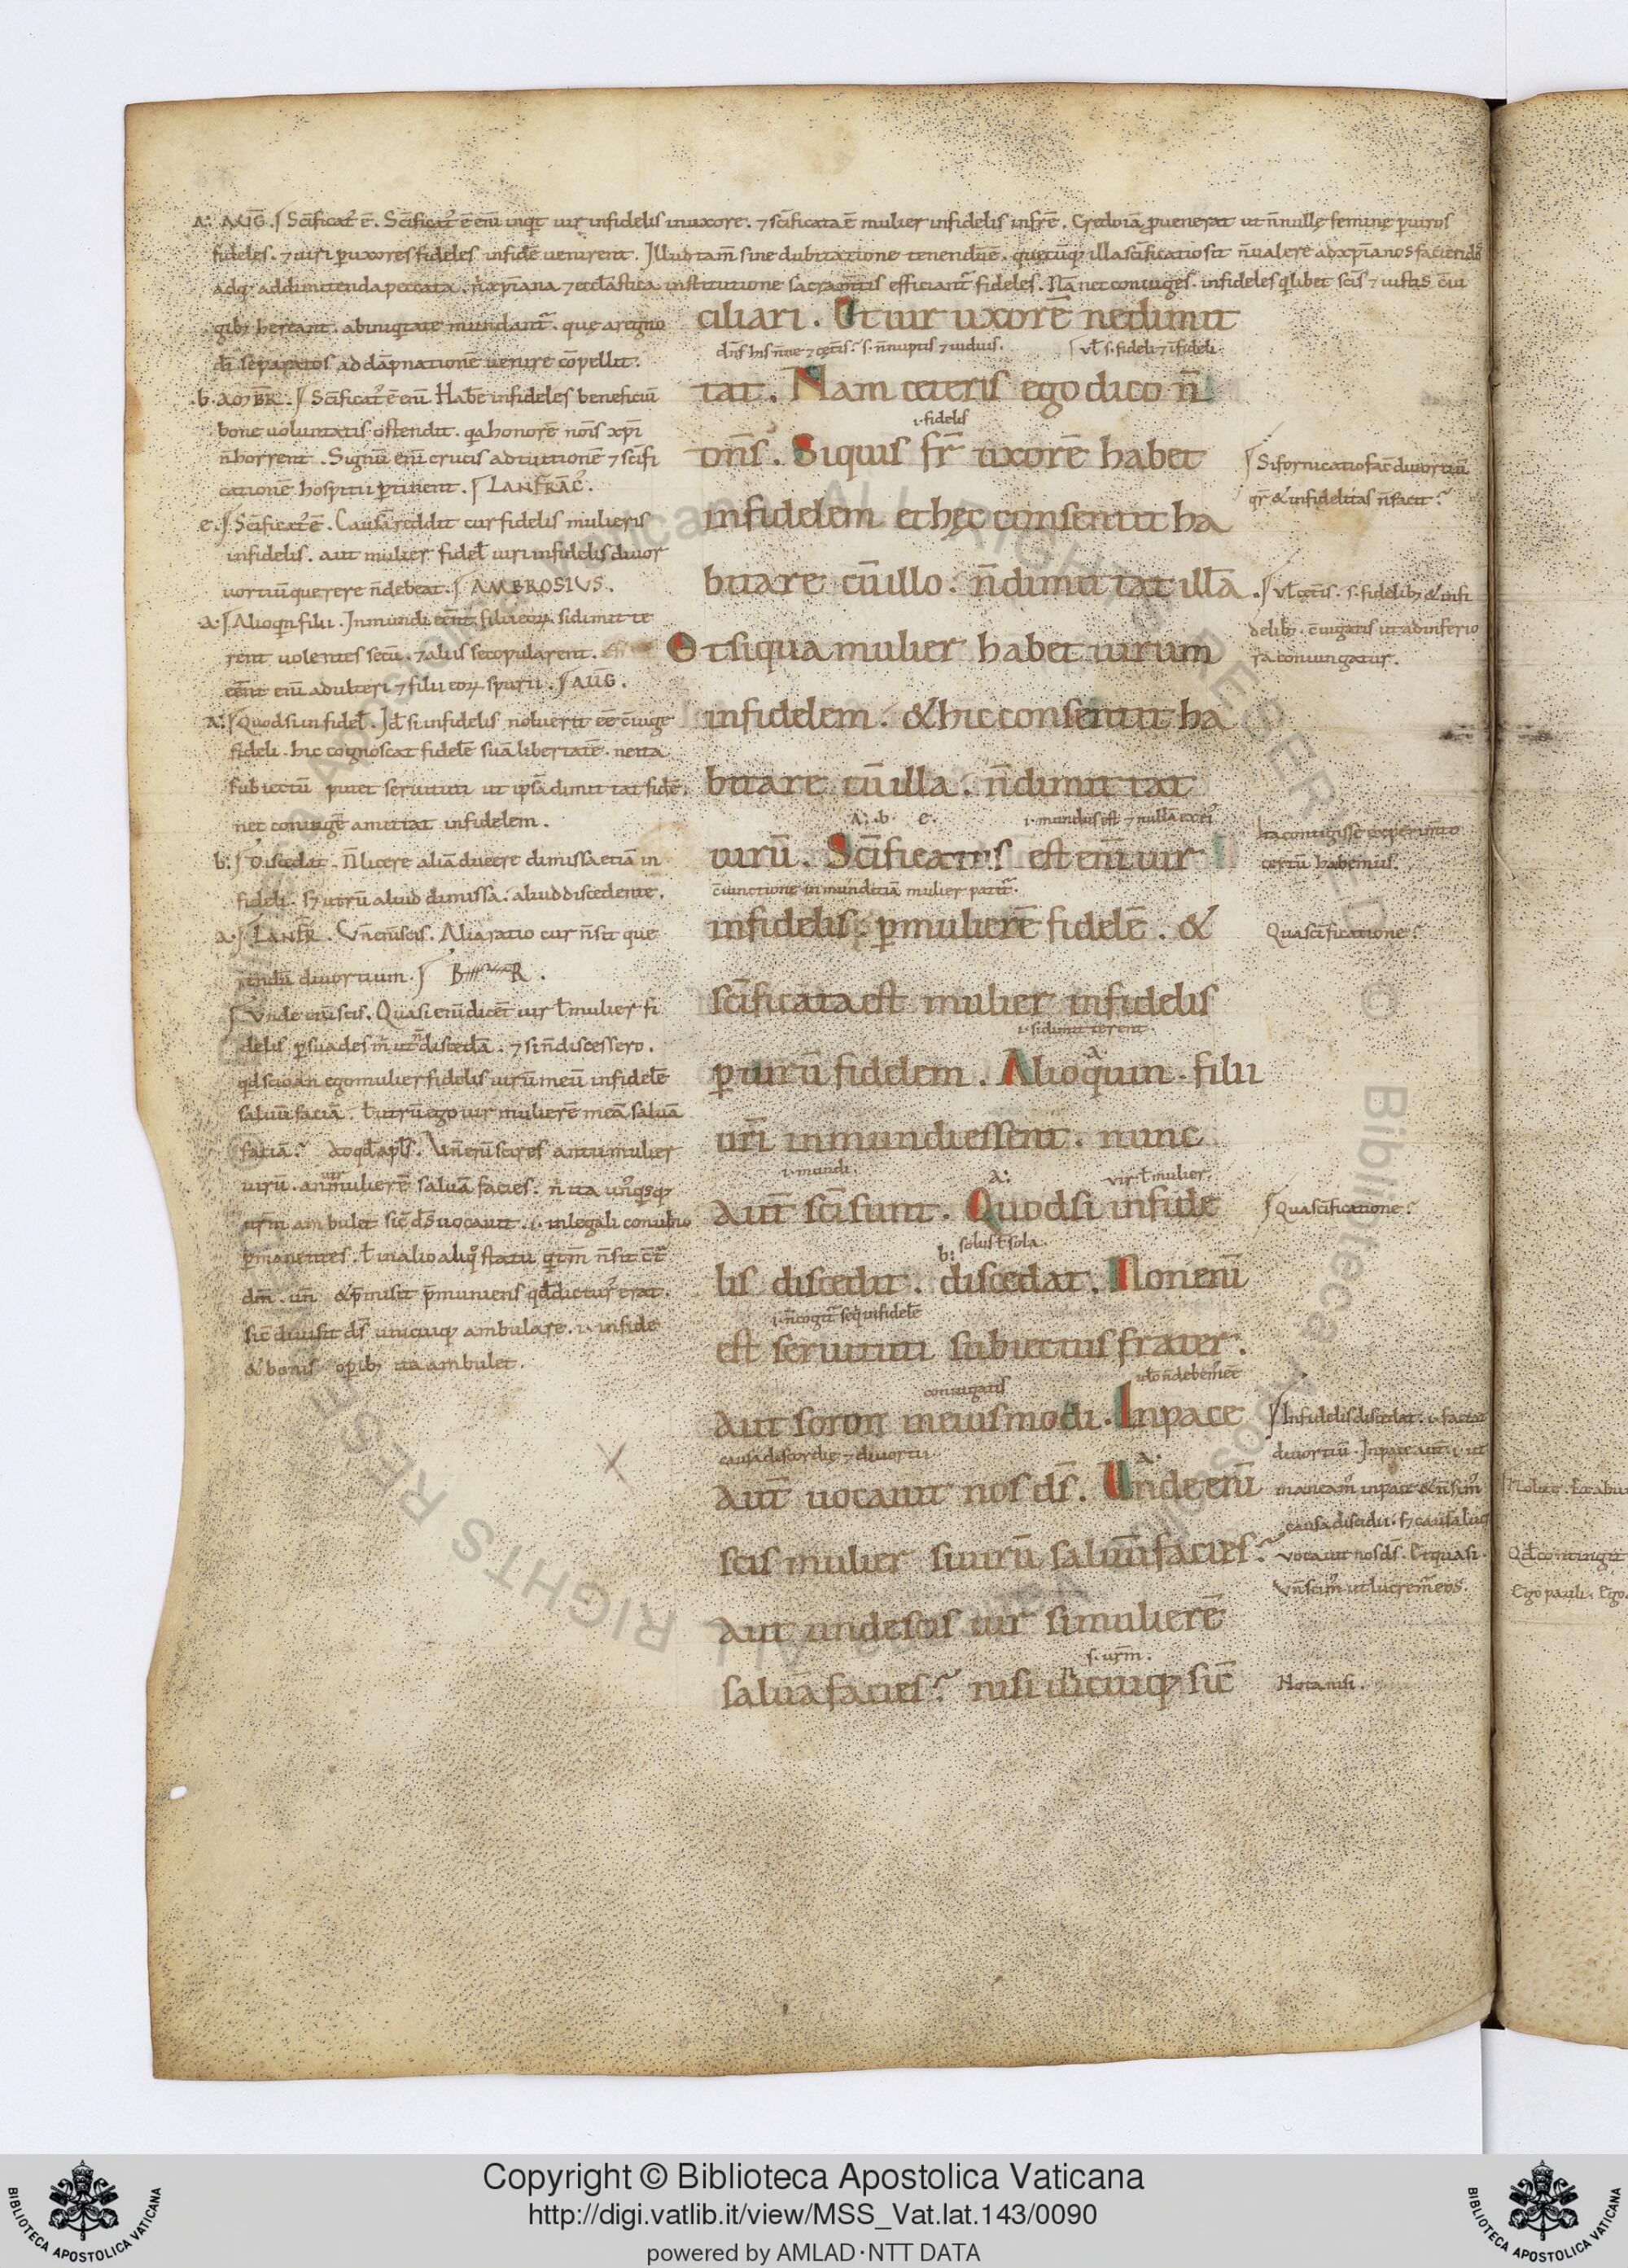 A. AUḠ. Scīficat᷒ ē. Scīficat᷒ ē enī inqt uir infidelis inuxore. ⁊ scīficata ē mulier infidelis infrē. Credo iā puenerat ut n̄nullę feminę puiros
fideles. ⁊ uiri puxores fideles infidē uenirent. Illud tam̄ sine dubitatione tenendū ē. quęcūq illa scīficatio sit n̄ualere ad xp̄ianos faciendos
adq; addimittenda peccata. n̄ xp̄iana ⁊ ecclāstica institutione sacram̄tis efficiant᷒ fideles. Nā nec coniuges infideles qlibet scīs ⁊ iustis cōiu
gib; hereant. abiniqtate mundant᷒. que a regno
dī separatos ad dāpnationē uenire cōpellit.
.b. AMBR. Scīficat᷒ ē enī. Habē infideles beneficiū
bone uoluntatis ostendit. qa honorē nōis xp̄i
n̄horrent. Signū enī crucis adtuitionē ⁊ scīfi
cationē hospitii ptinent. LANFRĀC᷒.
c. Scīficat᷒ ē. Causā reddit cur fidelis mulieris
infidelis. aut mulier fidel̄ uiri infidelis diuor
uortiū querere n̄debeat. AMBROSIUS.
a. Alioqn filii. Inmundi eēnt filii eoꝝ. si dimitte
rent uolentes secū. ⁊ aliis se copularent.
eēnt enī adulteri ⁊ filii eoꝝ spurii. AUḠ.
A. Quodsi infidel̄. Id̄ si infidelis noluerit eē cōiuge
fideli. hic cognoscat fidelē suā libertatē. ne ita
subiectū putet seruituti ut ipsā dimittat fidē.
nec coniugē amittat infidelem.
b. Discedat. N̄ licere aliā ducere dimissa etiā in
fideli. sꝫ utrū aliud dimissa. aliud discedente.
a. LANFR̄. Un̄ enī scis. Alia ratio cur n̄sit que
rendū diuortium.
Unde enī scis. Quasi enī dicēt uir l̄ mulier fi
delis psuades m̄ ut n̄ discedā. ⁊ si n̄discessero.
qd scio an ego mulier fidelis uirū meū infidelē
saluū faciā. l̄ utrū ego uir mulierē meā saluā
faciā? Adqd apl̄s. Un̄ enī scires an tu mulier
uirū. an uir mulierē saluā facies. n̄ ita un᷒qsq
urm̄ ambulet sic̄ ds̄ uocauit. .i. inlegali conubio
pmanentes. l̄ in alio aliqo statu
sic̄ diuisit ds̄ unicuiq; ambulare. .i. infide
& bonis opib; ita ambulet.
ciliari. Et uir uxorē nedimit
dn̄s his
tat. Nam ceteris ego dico n̄
vl̄ s. fideli ⁊ īfideli
dn̄s. Siquis fr̄ uxorē habet
i. fidelis
infidelem et hęc consentit ha
bitare cū illo. n̄ dimittat illā.
Et siqua mulier habet uirum
infidelem. & hic consentit ha
bitare cū illa. n̄ dimittat
A. .b. c.
uirū. Scīficatus est enī uir
cōiunctione inmunditiā mulier patit᷒.
infidelis. p mulierē fidelē. &
scīficata est mulier infidelis
.i. si dimitterent.
p uirū fidelem. Alioquin filii
urī inmundi essent. nunc
.i. mundi.
aut̄ scī sunt. Quodsi infide
uir l̄ mulier.
solus l̄ sola.
lis discedit. discedat. Non enī
est seruituti subiectus frater.
coniugatis
aut soror in eiusmodi. Inpace
causa discordię ⁊ diuortii
aut̄ uocauit nos ds̄. Unde enī
scis mulier si uirū saluū facies?
aut unde scis uir si mulierē
s. urm̄.
saluā facies? nisi unicuiq; sic̄
Si fornicatio fac̄ diuortiū
qr̄ & infidelitas n̄ facit?
vl̄ s. fidelib; & infi
delib; cōiugatis ut ad inferio
ra coniungatur.
ita contigisse exper
certū habemus.
Qua scīficatione?
Qua scīficatione?
Infidelis discedat. .i. faciat
diuortiū. Inpace aut̄ .i. ut
maneam᷒ inpace & n̄ sim᷒
causa discidii. sꝫ
uocauit nos ds̄. Et quasi
Un̄ scim᷒ ut lucrem᷒ eos.
Nota nisi.
Ego pauli. Ego
Copyright © Biblioteca Apostolica Vaticana
http://digi.vatlib.it/view/MSS_Vat.lat.143/0090
powered by AMLAD·NTT DATA
BIBLIOTECA APOSTOLICA VATICANA
BIBLIOTECA APOSTOLICA VATICANA